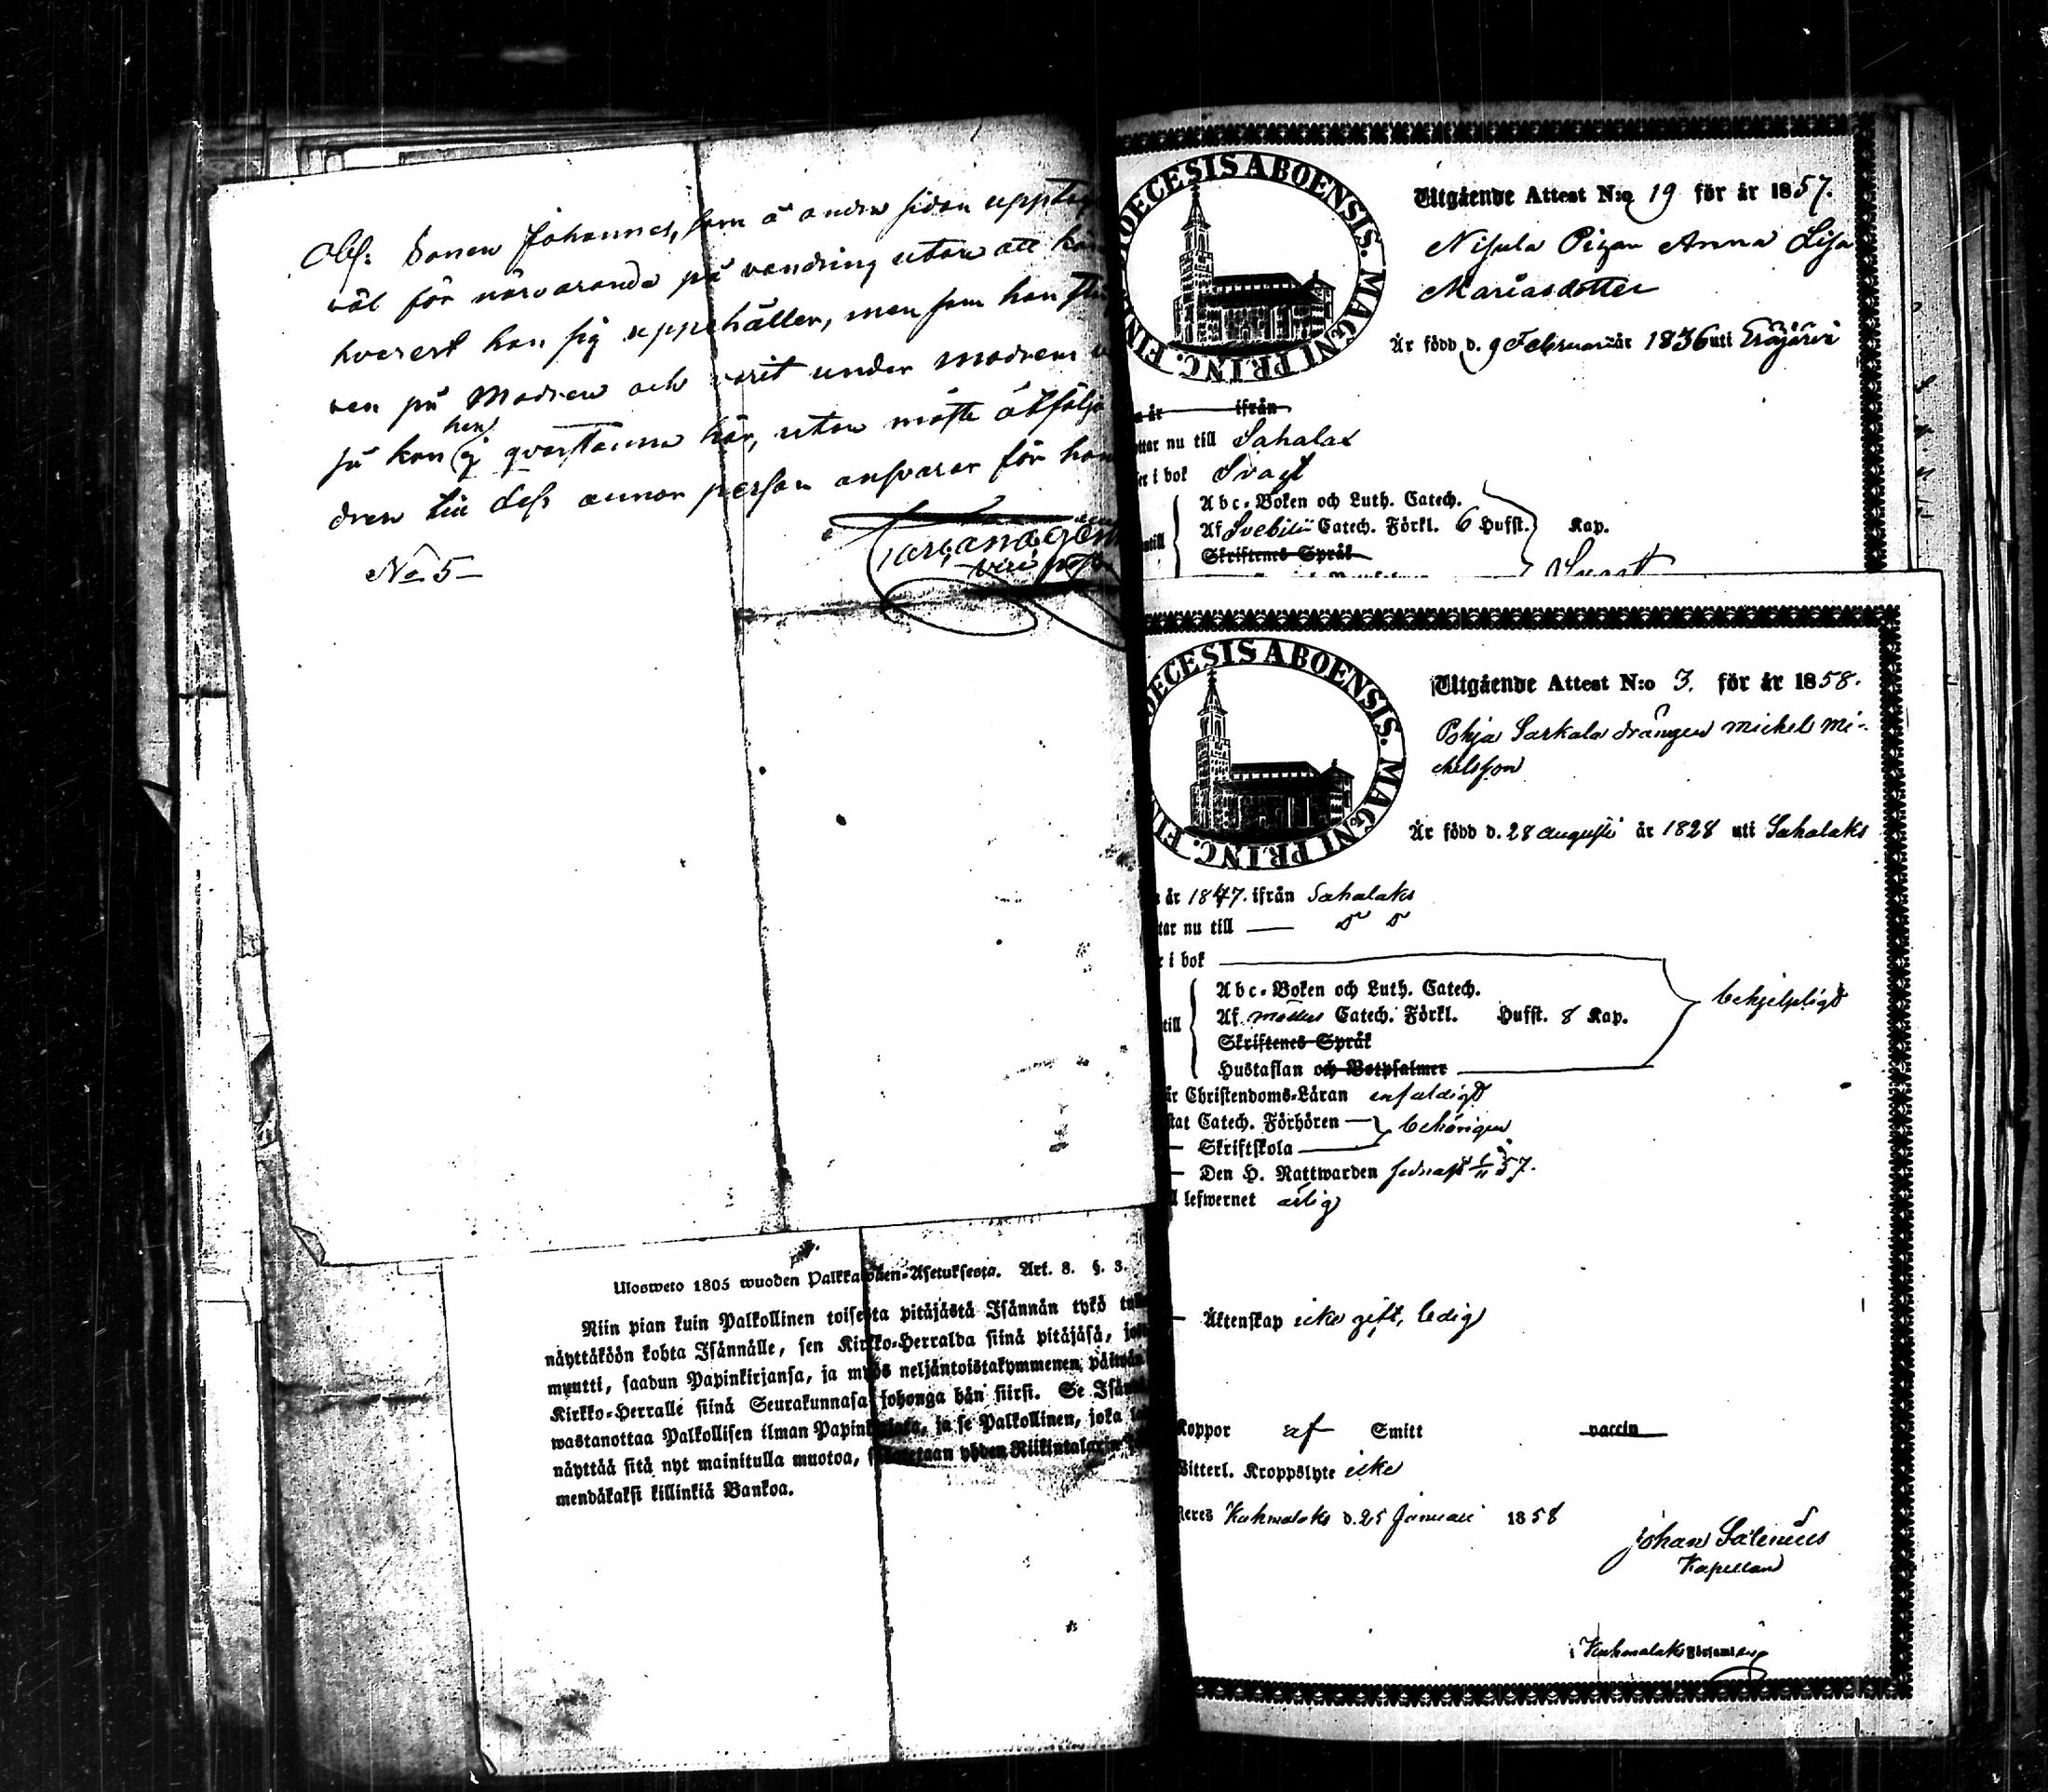 Obs: Sonen Johannes, som å andra sidan upptag
väl för närvarande på vandring utan att
hvarest han sig uppehåller, men som han
ven på Modren och varit under modrens
så kan han ej qvarstanna här, utan måste åtfölja
dren till dess annor person ansvarar för
No 5
Ulosweto 1805 wuoden Palkkawäen-Asetuksesta. Art. 8. §. 3.
Niin pian kuin Palkollinen toisesta pitäjästä Isännän tykö
näyttäköön kohta Isännälle, sen Kirkko-Herralda siinä pitäjäsä,
muutti, saadun Papinkirjansa, ja myös neljäntoistakymmenen päiwän
Kirkko-Herralle siinä Seurakunnasa johonga hän siirsi. Se
wastanottaa Palkollisen ilman Papinkirjata, ja se Palkollinen, joka
näyttää sitä nyt mainitulla muotoa, yhden Riikintalarin
mendäkaksi killinkiä Bankoa.
DIOECESIS ABOENSIS. MAGNI PRINC. FIN
Utgående Attest N:o 19 för år 1857.
Nisula Pigan Anna Lisa
Mariasdotter
Är född d. 9 Februari år 1836 uti Eräjärvi
år ifrån
ttar nu till Sahalax
er i bok Svagt
Abc-Boken och Luth. Catech.
Af Svebilii Catech. Förkl. 6 Hufst. Kap.
Skriftenes Språk
Svagt
DIOECESIS ABOENSIS. MAGNI PRINC. FIN
Utgående Attest N:o 3. för år 1858.
Pohja Sarkala drängen Michel Mi-
chelsson
Är född d. 28 Augusti år 1828 uti Sahalaks
år 1847. ifrån Sahalaks
ttar nu till — d d
r i bok
Abc-Boken och Luth. Catech.
till Af Möllers Catech. Förkl. Hufst. 8 Kap. behjelpligt
Skriftenes Språk
Hustaflan och Botpsalmer
är Christendoms-Läran enfaldigt
stat Catech. Förhören — behörigen
— Skriftskola
— Den H. Nattwarden sednast 1/11 57.
ll lefwernet ärlig
— Äktenskap icke gift, ledig
Koppor af Smitt vaccin
Witterl. Kroppslyte icke
teres Kuhmalaks d. 25 Januari 1858
Johan Salenius
Kapellan
i Kuhmalaks Församling